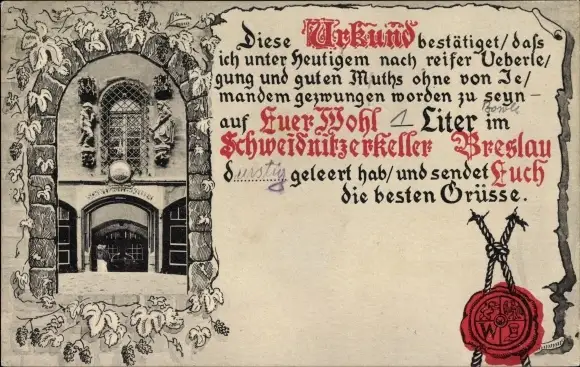 Diese Urkund bestätiget/ daſs
ich unter Heutigem nach reifer Ueberle/
gung und guten Muths ohne von Je/
mandem gezwungen worden zu seyn —
Bowle
auf Euer Wohl 1 Liter im
Schweidnitzerkeller Breslau
durstig geleert hab/ und sendet Euch
die besten Grüsse.
W E